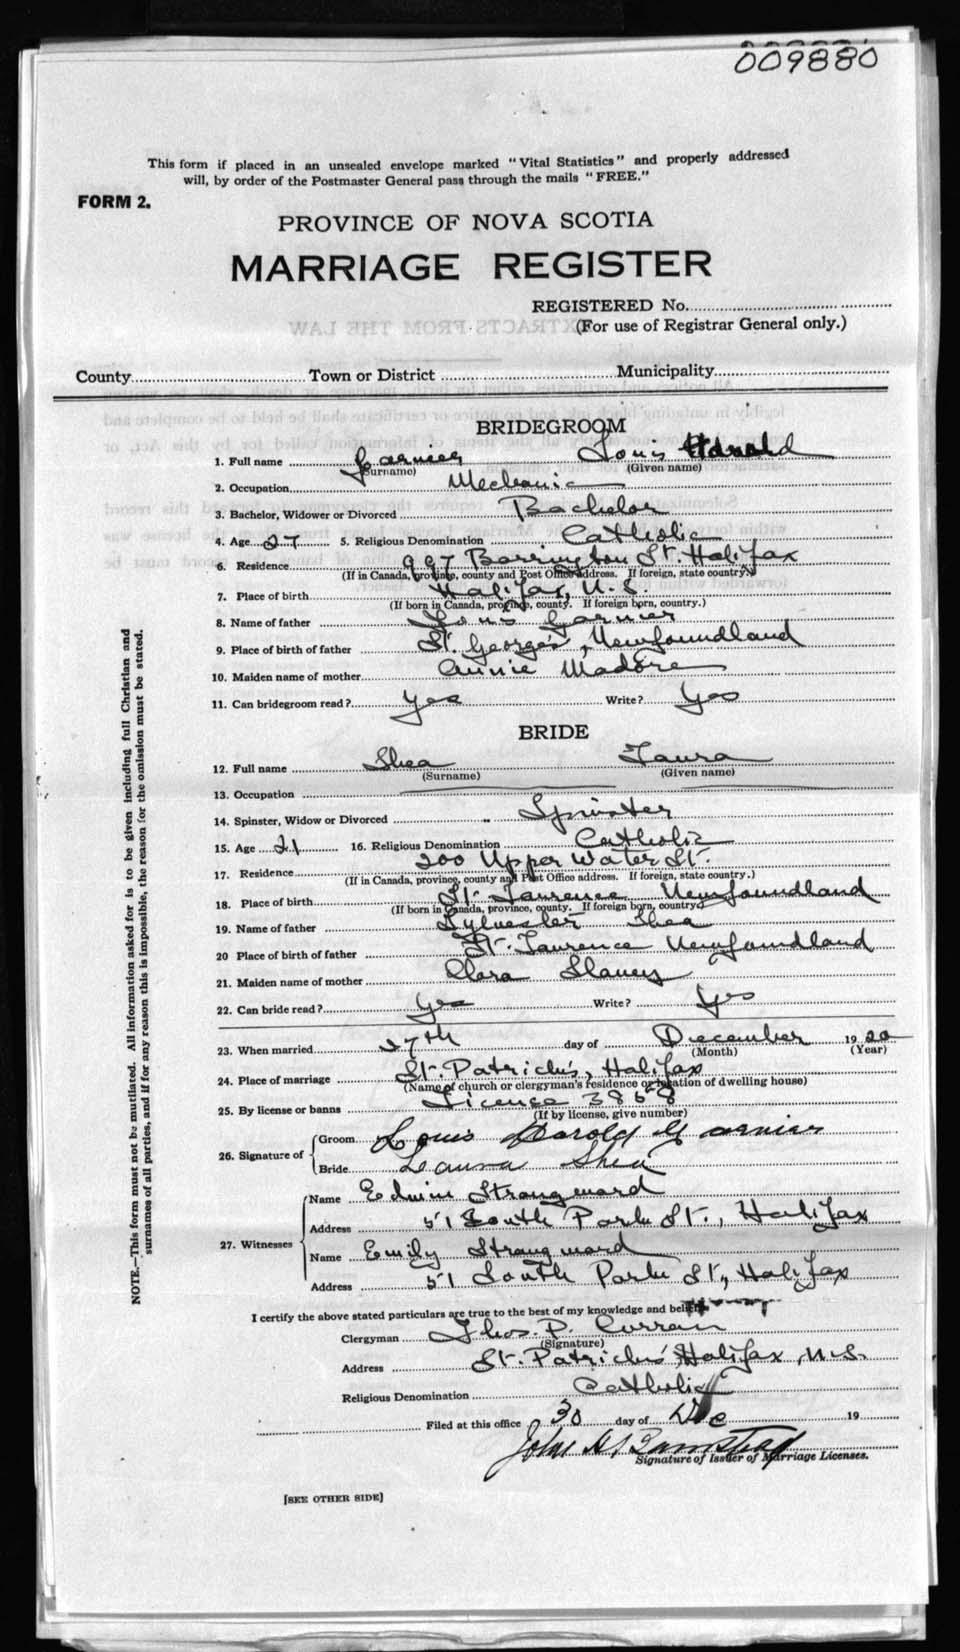 009880
This form if placed in an unsealed envelope marked "Vital Statistics" and properly addressed
will, by order of the Postmaster General pass through the mails "FREE."
FORM 2.
PROVINCE OF NOVA SCOTIA
MARRIAGE REGISTER
REGISTERED No.
(For use of Registrar General only.)
County Town or District Municipality
BRIDEGROOM
1. Full name Garnier Louis Harold
(Surname) (Given name)
2. Occupation Mechanic
3. Bachelor, Widower or Divorced Bachelor
4. Age 27 5. Religious Denomination Catholic
6. Residence 997 Barrington St. Halifax
(If in Canada, province, county and Post Office address. If foreign, state country.)
7. Place of birth Halifax, N.S.
(If born in Canada, province, county. If foreign born, country.)
8. Name of father Louis Garnier
9. Place of birth of father St. George's, Newfoundland
10. Maiden name of mother Annie Madore
11. Can bridegroom read? Yes Write? Yes
BRIDE
12. Full name Shea Laura
(Surname) (Given name)
13. Occupation
14. Spinster, Widow or Divorced Spinster
15. Age 21 16. Religious Denomination Catholic
17. Residence 200 Upper Water St.
(If in Canada, province, county and Post Office address. If foreign, state country.)
18. Place of birth St. Laurence Newfoundland
(If born in Canada, province, county. If foreign born, country.)
19. Name of father Sylvester Shea
20 Place of birth of father St. Laurence Newfoundland
21. Maiden name of mother Clara Slaney
22. Can bride read? Yes Write? Yes
23. When married 27th day of December 1920
(Month) (Year)
24. Place of marriage St. Patrick's, Halifax
(Name of church or clergyman's residence or location of dwelling house)
25. By license or banns License 3858
(If by license, give number)
26. Signature of Groom Louis Harold Garnier
Bride Laura Shea
27. Witnesses Name Edwin Strangward
Address 51 South Park St., Halifax
Name Emily Strangward
Address 51 South Park St., Halifax
I certify the above stated particulars are true to the best of my knowledge and belief.
Clergyman Thos. P. Curran
(Signature)
Address St. Patrick's Halifax, N.S.
Religious Denomination Catholic
Filed at this office 30 day of Dec 19
John H Barnstead
Signature of Issuer of Marriage Licenses.
[SEE OTHER SIDE]
NOTE.—This form must not be mutilated. All information asked for is to be given including full Christian and
surnames of all parties, and if for any reason this is impossible, the reason for the omission must be stated.